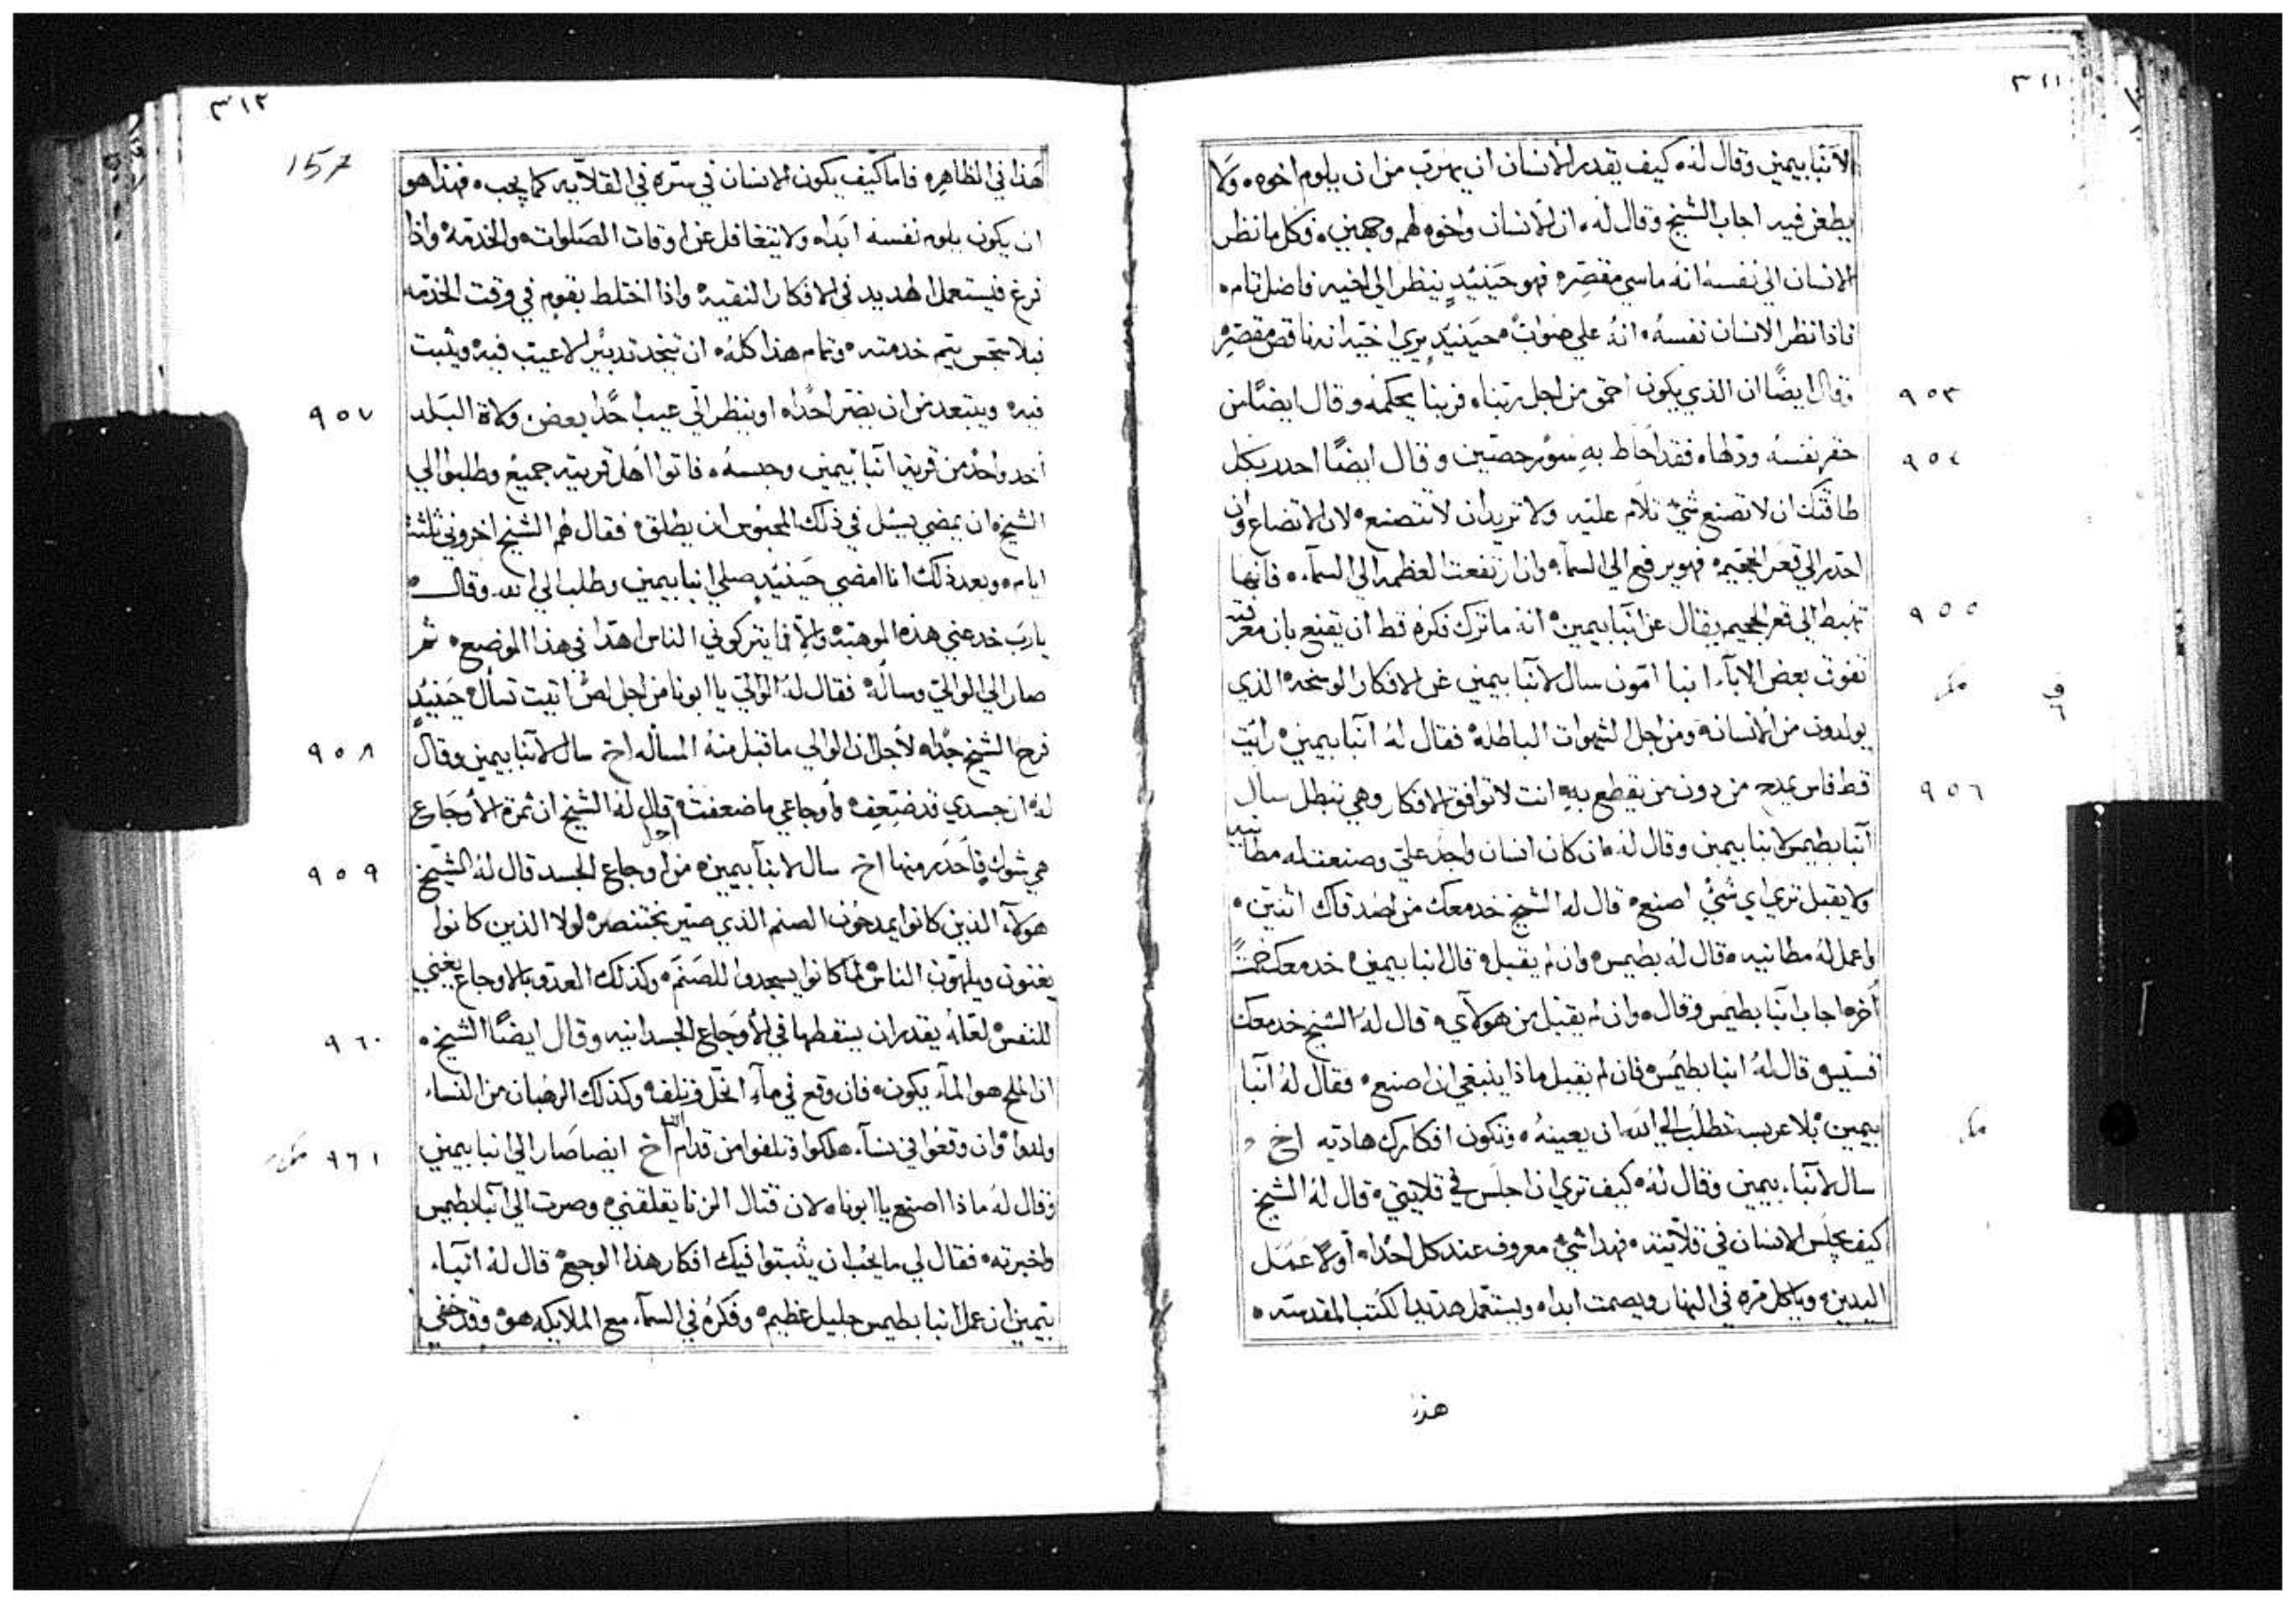 ٣١١
لآنبا بيمين وقال له٠ كيف يقدر الانسان ان يهرب من ان يلوم اخوه٠ ولا
يطغز فيه اجاب الشيخ وقال له٠ ان الانسان واخوه لهم وجهين٠ فكل ما نظر
الانسان الي نفسه انه ماسي مقصر٠ فهو حينيدٍ ينظر الي اخيه فاضل تام٠
فاذا نظر الانسان نفسه٠ انه علي صواب٠ حينيدٍ يري اخيه انه ناقص مقصر٠
٩٥٣
وقال ايضًا ان الذي يكون احمق من اجل ربنا٠ فربنا يحكمه وقال ايضًا من
٩٥٤
حقر نفسه ورذلها٠ فقد احاط به سور حصين وقال ايضًا احدر بكل
طاقتك ان لا تصنع شي تلام عليه ولا تريد ان لا تتصنع٠ لان الاتضاع وان
احدر الي قعر الجحيم٠ فهو يرفع الي السما٠ وان ارتفعت العظمه الي السمآ٠ فانها
٩٥٥
تهبط الي قعر الجحيم يقال عن انبا بيمين٠ انه ما ترك فكره قط ان يقنع بان معرفته
تفوق بعض الابآء انبا امون سال لآنبا بيمين عن الافكار الوسخه٠ الذي
يولدون من الانسان٠ ومن اجل الشهوات الباطله٠ فقال له آنبا بيمين٠ رايت
٩٥٦
قط فاس يمدح من دون من يقطع به٠ انت لا توافق الافكار وهي تبطل سال
آنبا بطيمس لانبا بيمين وقال له٠ ان كان انسان واجد علي وصنعت له مطانيه
ولا يقبل تري اي شيً اصنع٠ قال له الشيخ خد معك من اصدقاك اثنين٠
واعمل له مطانيه٠ قال له بطيمس٠ وان لم يقبل٠ قال انبا بيمين٠ خد معك خمسة
أخر٠ اجاب انبا بطيمس وقال٠ وان لم يقبل من هولآي٠ قال له الشيخ خد معك
قسيس قال له انبا بطيمس٠ فان لم يقبل ماذا ينبغي ان اصنع٠ فقال له آنبا
بيمين٠ بلا عربسه تطلب الي الله ان يعينه٠ وتكون افكارك هاديه اخ
سال لآنبا٠ بيمين وقال له٠ كيف تري ان اجلس في قلايتي٠ قال له الشيخ
كيف يجلس الانسان في قلايته٠ فهدا شي معروف عند كل احد٠ أولاً عمل
اليدين٠ وياكل مره في النهار ويصمت ابدا٠ ويستعمل هديد الكتب المقدسه٠
هذا
٣١٢
157
هذا في الظاهر٠ فاما كيف يكون الانسان في ستره في القلايه كما يجب٠ فهذا هو
ان يكون يلوم نفسه ابدا٠ ولا يتغافل عن اوقات الصلوات٠ والخدمة٠ واذا
فرغ فيستعمل الهديد في الافكار النقيه٠ واذا اختلط بقوم في وقت الخدمه
فبلا سجس يتم خدمته٠ وتمام هذا كله٠ ان تتخد تدبير لا عيب فيه٠ ويثبت
٩٥٧
فيه٠ ويبتعد من ان يضر احدا٠ او ينظر الي عيب احدا بعض ولاة البلد
أخد واحد من قرية آنبا بيمين وحبسه٠ فاتوا اهل قريته جميع وطلبوا الي
الشيخ٠ ان يمضي يسل في ذلك المحبوس ان يطلق٠ فقال لهم الشيخ اخروني ثلثة
ايام٠ وبعد ذلك انا امضي حينيدٍ صلي انبا بيمين وطلب الي الله وقال٠
يارب خد عني هذه الموهبه٠ والا فما يتركوني الناس اهدا في هذا الموضع٠ ثم
صار الي الوالي وساله٠ فقال له الوالي يا ابونا من اجل لص اتيت تسأل٠ حينيدٍ
٩٥٨
فرح الشيخ جدا٠ لأجل ان الوالي ما قبل منه المسأله اخ سال لآنبا بيمين وقال
له٠ ان جسدي قد ضعف٠ وأوجاعي ما ضعفت٠ قال له الشيخ ان ثمرة الأوجاع
٩٥٩
هي شوك فأحدر منها اخ سال لانبا بيمين٠ من اجل اوجاع الجسد قال له الشيخ
هولآء الذين كانوا يمدحون الصنم الذي صير بختنصر٠ لولا الذين كانوا
يغنون ويلهون الناس٠ لما كانوا يسجدوا للصنم٠ وكذلك العدو بالاوجاع يغني
٩٦٠
للنفس٠ لعله يقدر ان يسقطها في الأوجاع الجسدانيه وقال ايضًا الشيخ٠
ان الملح هو الماء يكون٠ فان وقع في مآء انحل وتلف٠ وكذلك الرهبان من النساء
٩٦١
ولدوا٠ وان وقعوا في نسآء هلكوا وتلفوا من قدام الله أخ ايضا صار الي انبا بيمين
وقال له ماذا اصنع يا ابونا٠ لان قتال الزنا يقلقني٠ وصرت الي آنبا بطيمس
واخبرته٠ فقال لي ما يجب ان يثبتوا فيك افكار هذا الوجع٠ قال له انبا٠
بيمين ان عمل انبا بطيمس جليل عظيم٠ وفكره في السمآء مع الملايكه هو٠ وقد خفي